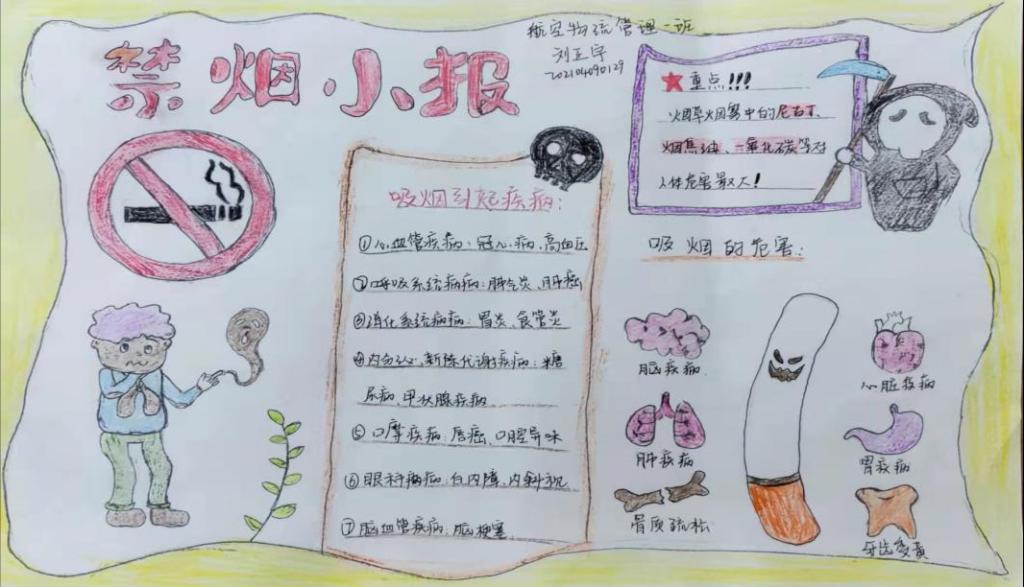 禁烟小报
航空物流管理一班
刘正宇
202104090129
重点!!!
烟草烟雾中的尼古丁、
烟焦油、一氧化碳等对
人体危害最大!
吸烟引起疾病:
①心血管疾病:冠心病、高血压
②呼吸系统疾病:肺气炎、肺癌
③消化系统疾病:胃炎、食管炎
④内分泌、新陈代谢疾病:糖
尿病、甲状腺疾病
⑤口摩疾病:唇癌、口腔异味
⑥眼科疾病:白内障、内斜视
⑦脑血管疾病:脑梗塞
吸烟的危害:
脑疾病
心脏疾病
肺疾病
胃疾病
骨质疏松
牙齿变黄